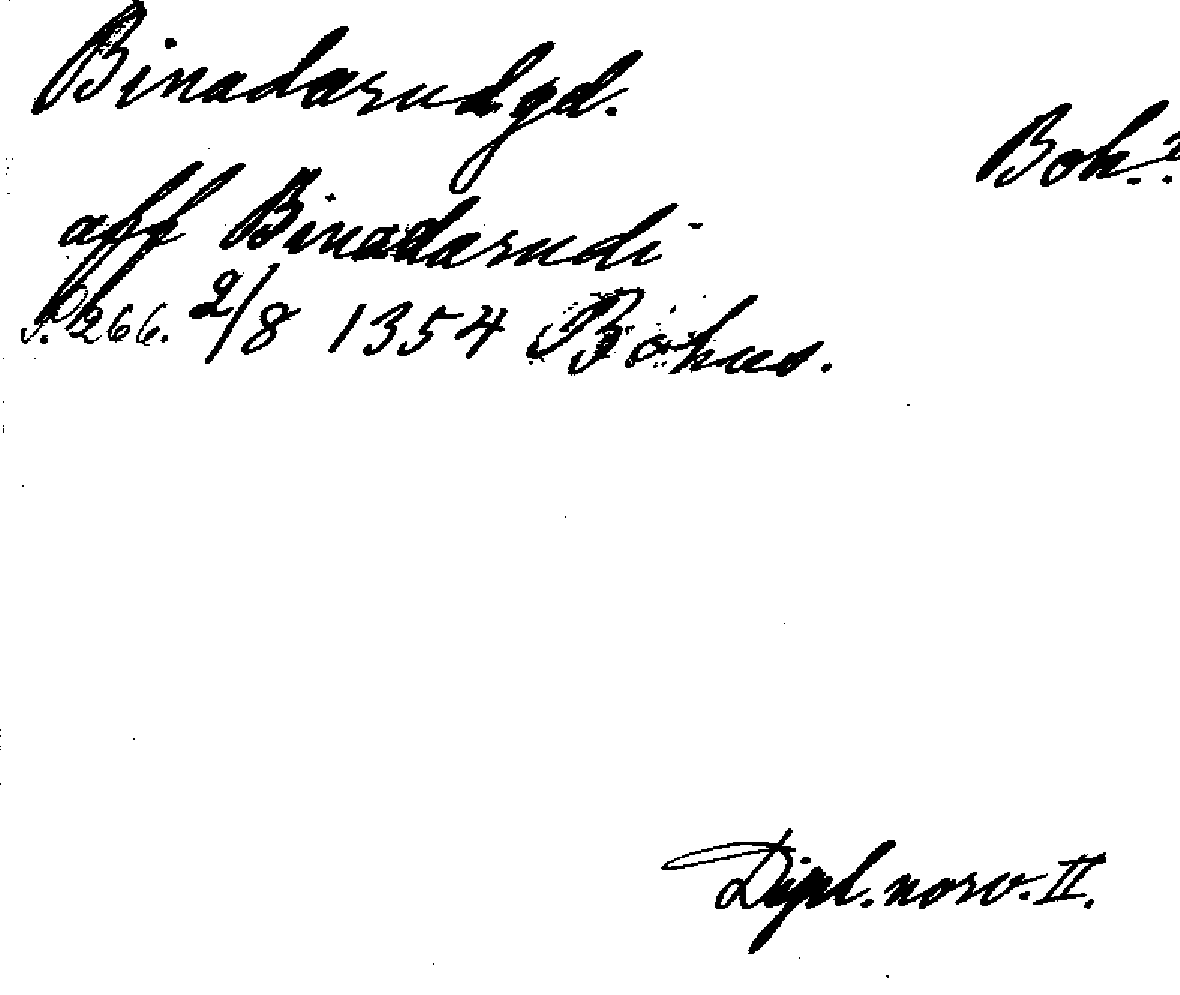 Binadarudgd.
Boh.?
aff Binadarudi
S. 266. 2/8 1354 Bohus.
Dipl. norv. II.